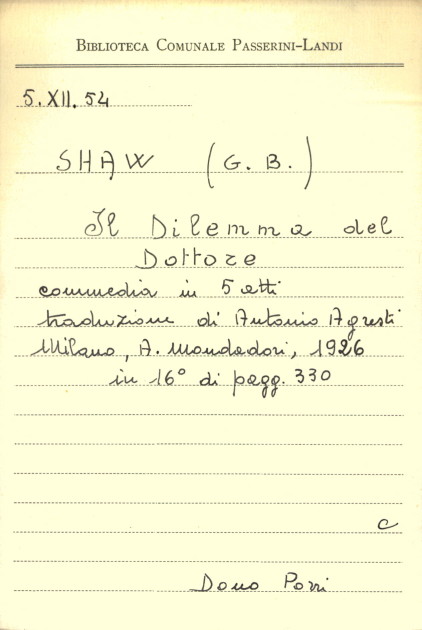 BIBLIOTECA COMUNALE PASSERINI-LANDI
5.XII.54
SHAW (G. B.)
Il Dilemma del
Dottore
commedia in 5 atti
traduzione di Antonio Agresti
Milano, A. Mondadori, 1926
in 16° di pagg. 330
C
Dono Porri